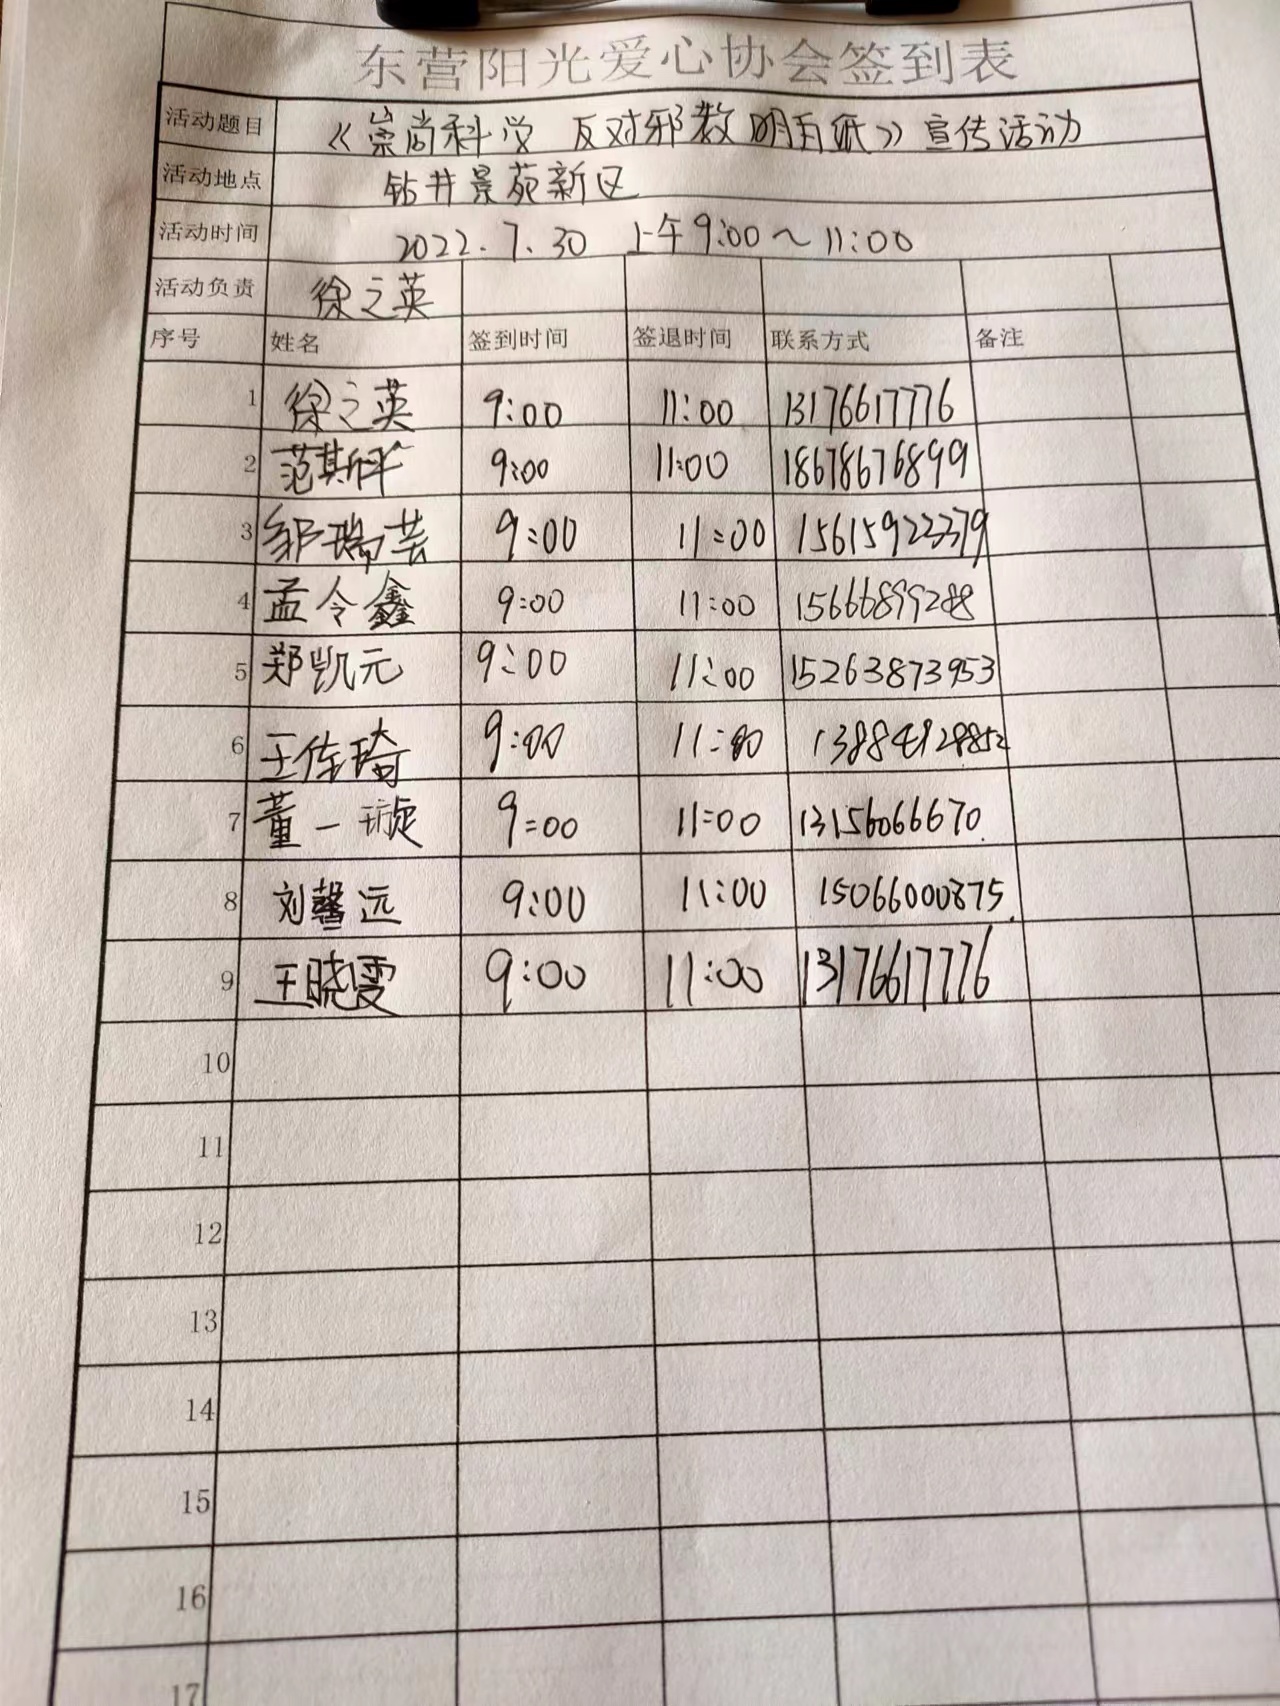 东营阳光爱心协会签到表
活动题目 《崇尚科学 反对邪教 明白纸》宣传活动
活动地点 钻井景苑新区
活动时间 2022.7.30 上午9:00～11:00
活动负责 徐之英
序号 姓名 签到时间 签退时间 联系方式 备注
1 徐之英 9:00 11:00 13176617776
2 范斯 9:00 11:00 18678676899
3 邹瑞芸 9:00 11:00 15615923379
4 孟令鑫 9:00 11:00 15666899288
5 郑凯元 9:00 11:00 15263873953
6 王佳琦 9:00 11:00
7 董一璇 9:00 11:00 13156066670
8 刘馨远 9:00 11:00 15066000875
9 王晓雯 9:00 11:00 13176617776
10
11
12
13
14
15
16
17